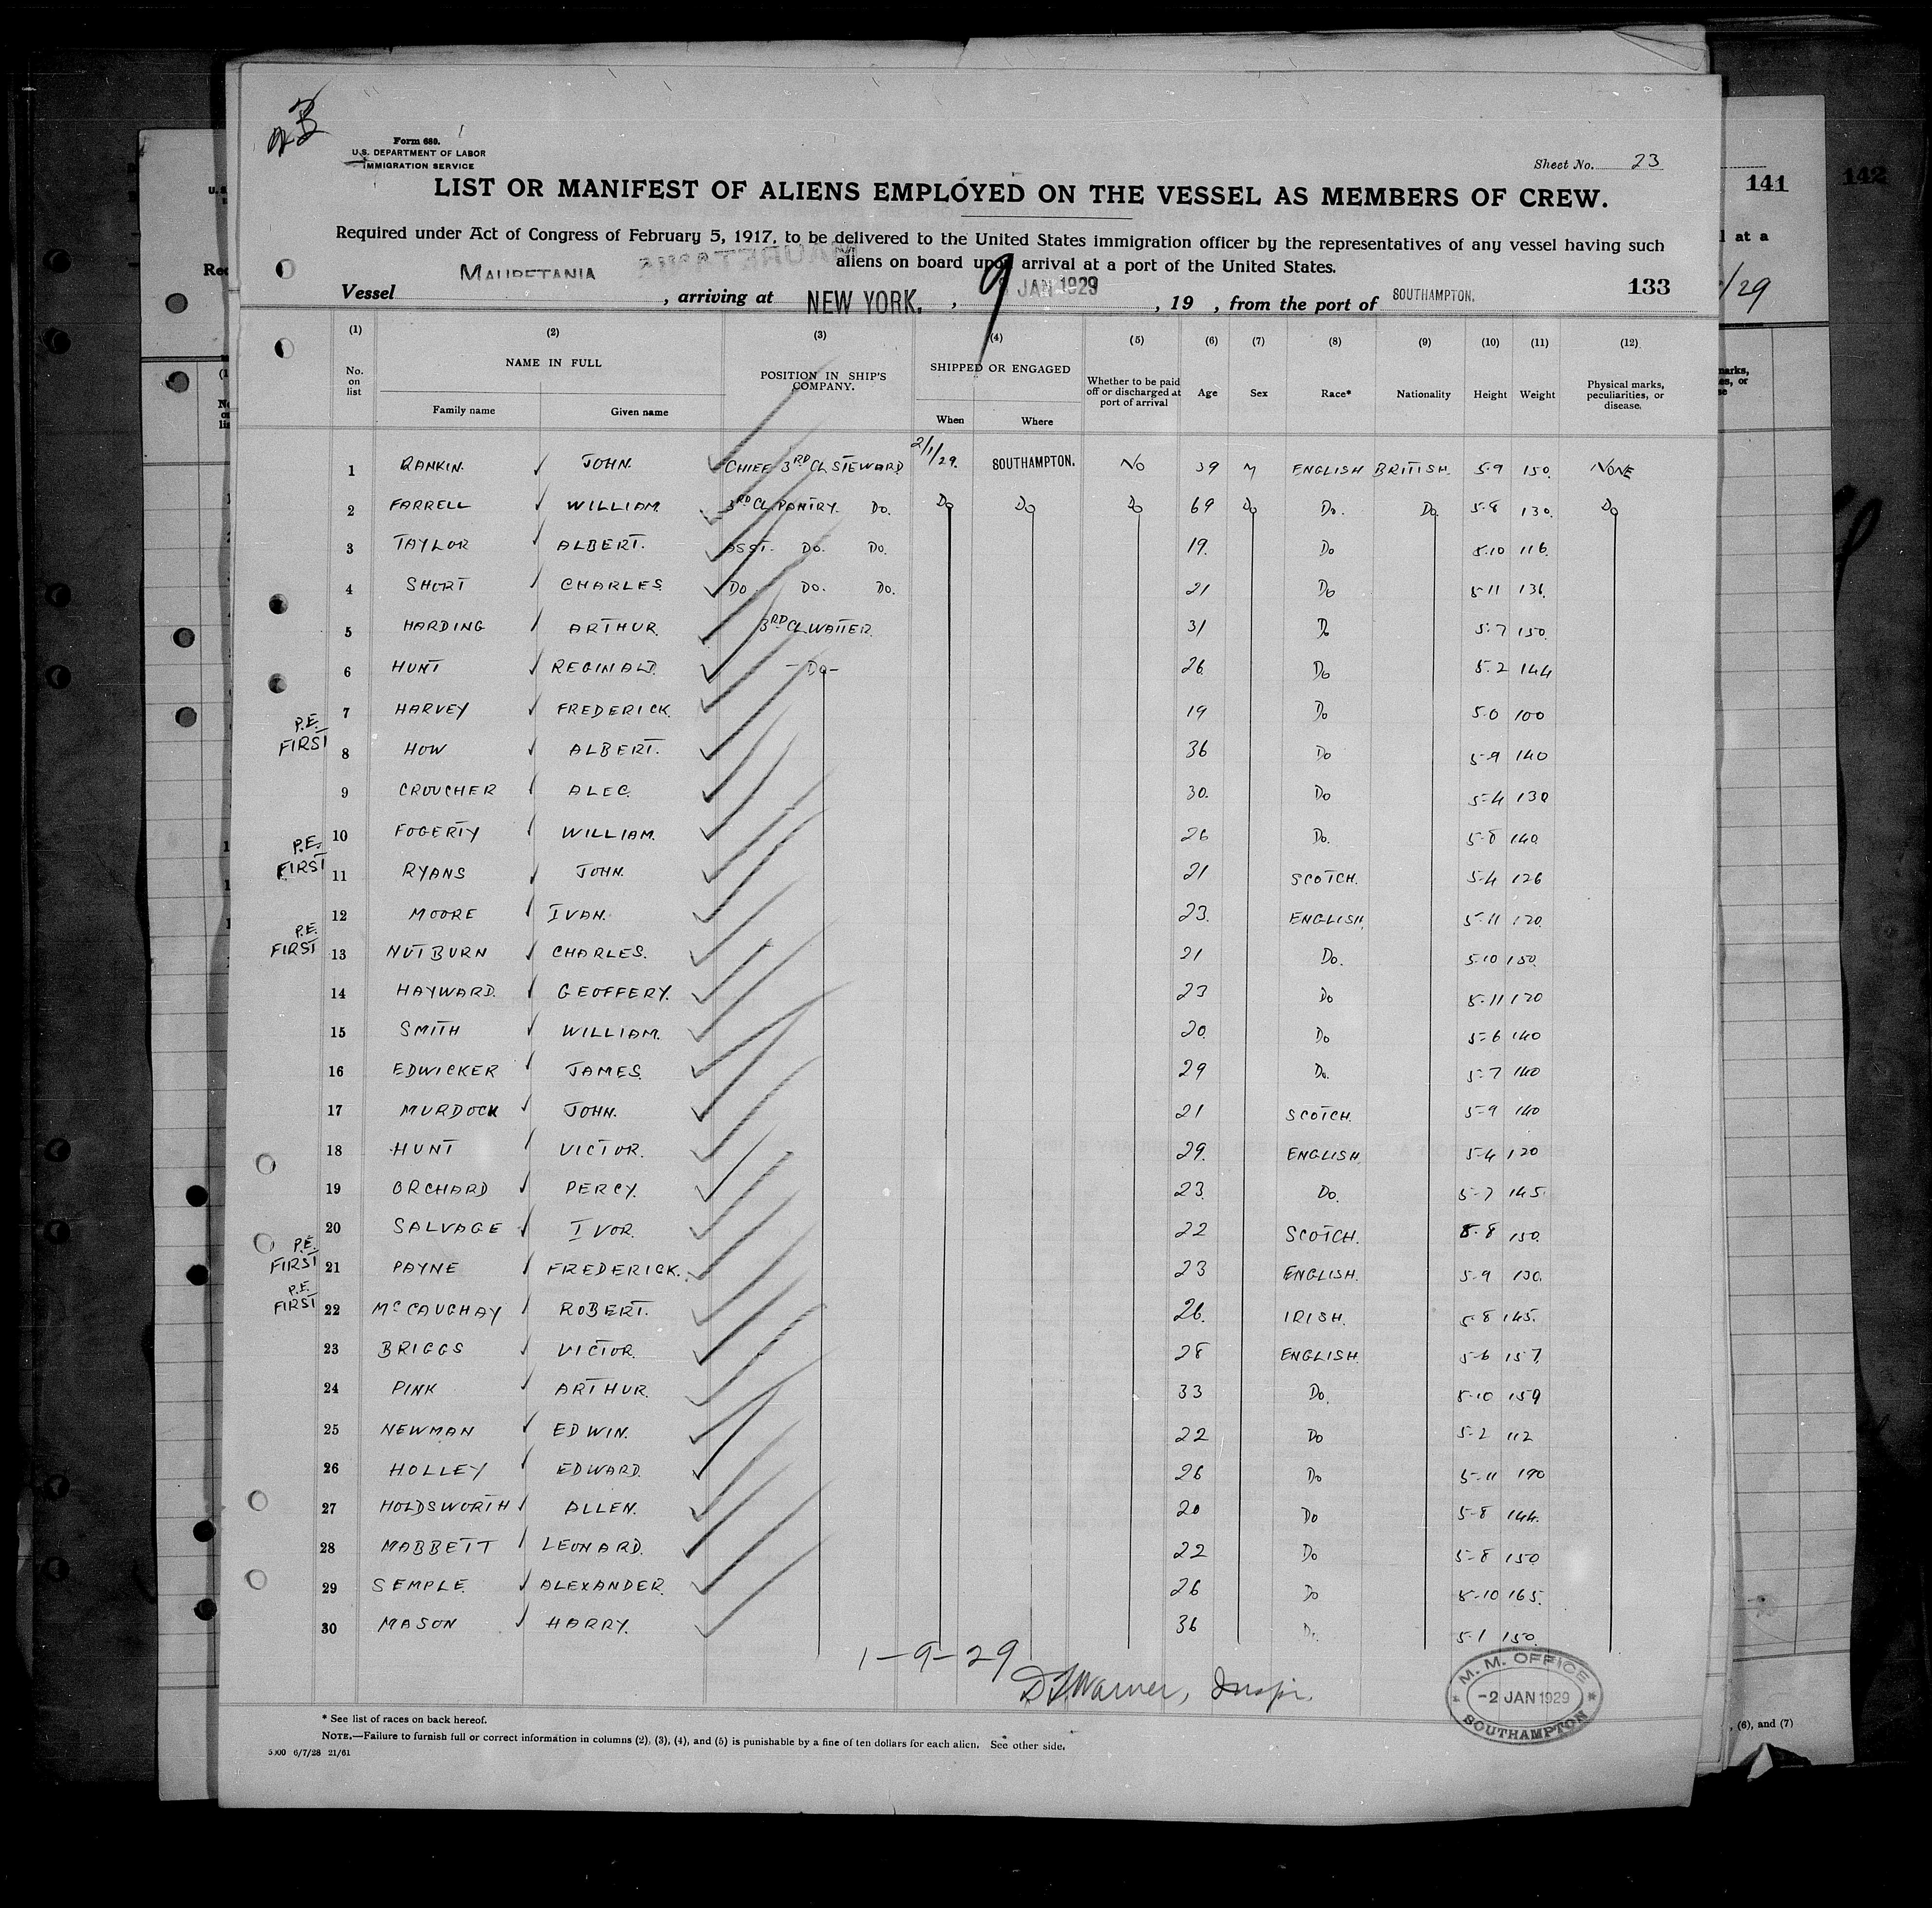 23
Form 680.
U.S. DEPARTMENT OF LABOR
IMMIGRATION SERVICE
Sheet No. 23
LIST OR MANIFEST OF ALIENS EMPLOYED ON THE VESSEL AS MEMBERS OF CREW.
Required under Act of Congress of February 5, 1917, to be delivered to the United States immigration officer by the representatives of any vessel having such
aliens on board upon arrival at a port of the United States.
Vessel MAURETANIA, arriving at NEW YORK, 9 JAN 1929, 19 , from the port of SOUTHAMPTON. 133
(1) (2) (3) (4) (5) (6) (7) (8) (9) (10) (11) (12)
No. on list NAME IN FULL Family name Given name POSITION IN SHIP'S COMPANY. SHIPPED OR ENGAGED When Where Whether to be paid off or discharged at port of arrival Age Sex Race* Nationality Height Weight Physical marks, peculiarities, or disease.
1 RANKIN. JOHN. CHIEF 3RD CL STEWARD 2/1/29. SOUTHAMPTON. NO 39 M ENGLISH BRITISH. 5.9 150. NONE
2 FARRELL WILLIAM 3RD CL PANTRY. DO. Do Do Do 69 Do Do. Do. 5.8 130. Do
3 TAYLOR ALBERT. ASST. DO. DO. 19. Do 5.10 116.
4 SHORT CHARLES. DO DO. DO. 21 Do 5-11 136.
5 HARDING ARTHUR. 3RD CL WAITER. 31 Do 5.7 150.
6 HUNT REGINALD. -Do- 26. Do 5.2 144
7 HARVEY FREDERICK. 19 Do 5.0 100
P.E. FIRST 8 HOW ALBERT. 36 Do 5-9 140
9 CROUCHER ALEC. 30. Do 5-4 130
10 FOGERTY WILLIAM. 26 Do. 5-8 140
P.E. FIRST 11 RYANS JOHN. 21 SCOTCH. 5-4 126
12 MOORE IVAN. 23. ENGLISH.
P.E. FIRST 13 NUTBURN CHARLES. 21 Do. 5.10 150.
14 HAYWARD. GEOFFERY. 23 Do
15 SMITH WILLIAM. 20. Do 5-6 140
16 EDWICKER JAMES. 29 Do. 5-7 140
17 MURDOCK JOHN. 21 SCOTCH. 5-9 140
18 HUNT VICTOR. 29. ENGLISH. 5-4 120
19 ORCHARD PERCY. 23. Do. 5-7 145.
20 SALVAGE IVOR. 22 SCOTCH. 5.8 150.
P.E. FIRST 21 PAYNE FREDERICK. 23 ENGLISH. 5.9 130.
P.E. FIRST 22 McCAUGHAY ROBERT. 26. IRISH. 5-8 145.
23 BRIGGS VICTOR. 28 ENGLISH. 5-6 157.
24 PINK ARTHUR. 33 Do. 5-10 159
25 NEWMAN EDWIN. 22 Do 5-2 112
26 HOLLEY EDWARD. 26 Do 5-11 190
27 HOLDSWORTH ALLEN. 20 Do 5-8 144.
28 MABBETT LEONARD. 22 Do 5-8 150
29 SEMPLE. ALEXANDER. 26 Do 5-10 165.
30 MASON HARRY. 36 Do. 5.1 150.
1-9-29
D Warner, Inspr.
M. M. OFFICE
-2 JAN 1929
SOUTHAMPTON
* See list of races on back hereof.
NOTE.—Failure to furnish full or correct information in columns (2), (3), (4), and (5) is punishable by a fine of ten dollars for each alien. See other side.
5000 6/7/28 21/61
141
142
at a
/29
, (6), and (7)